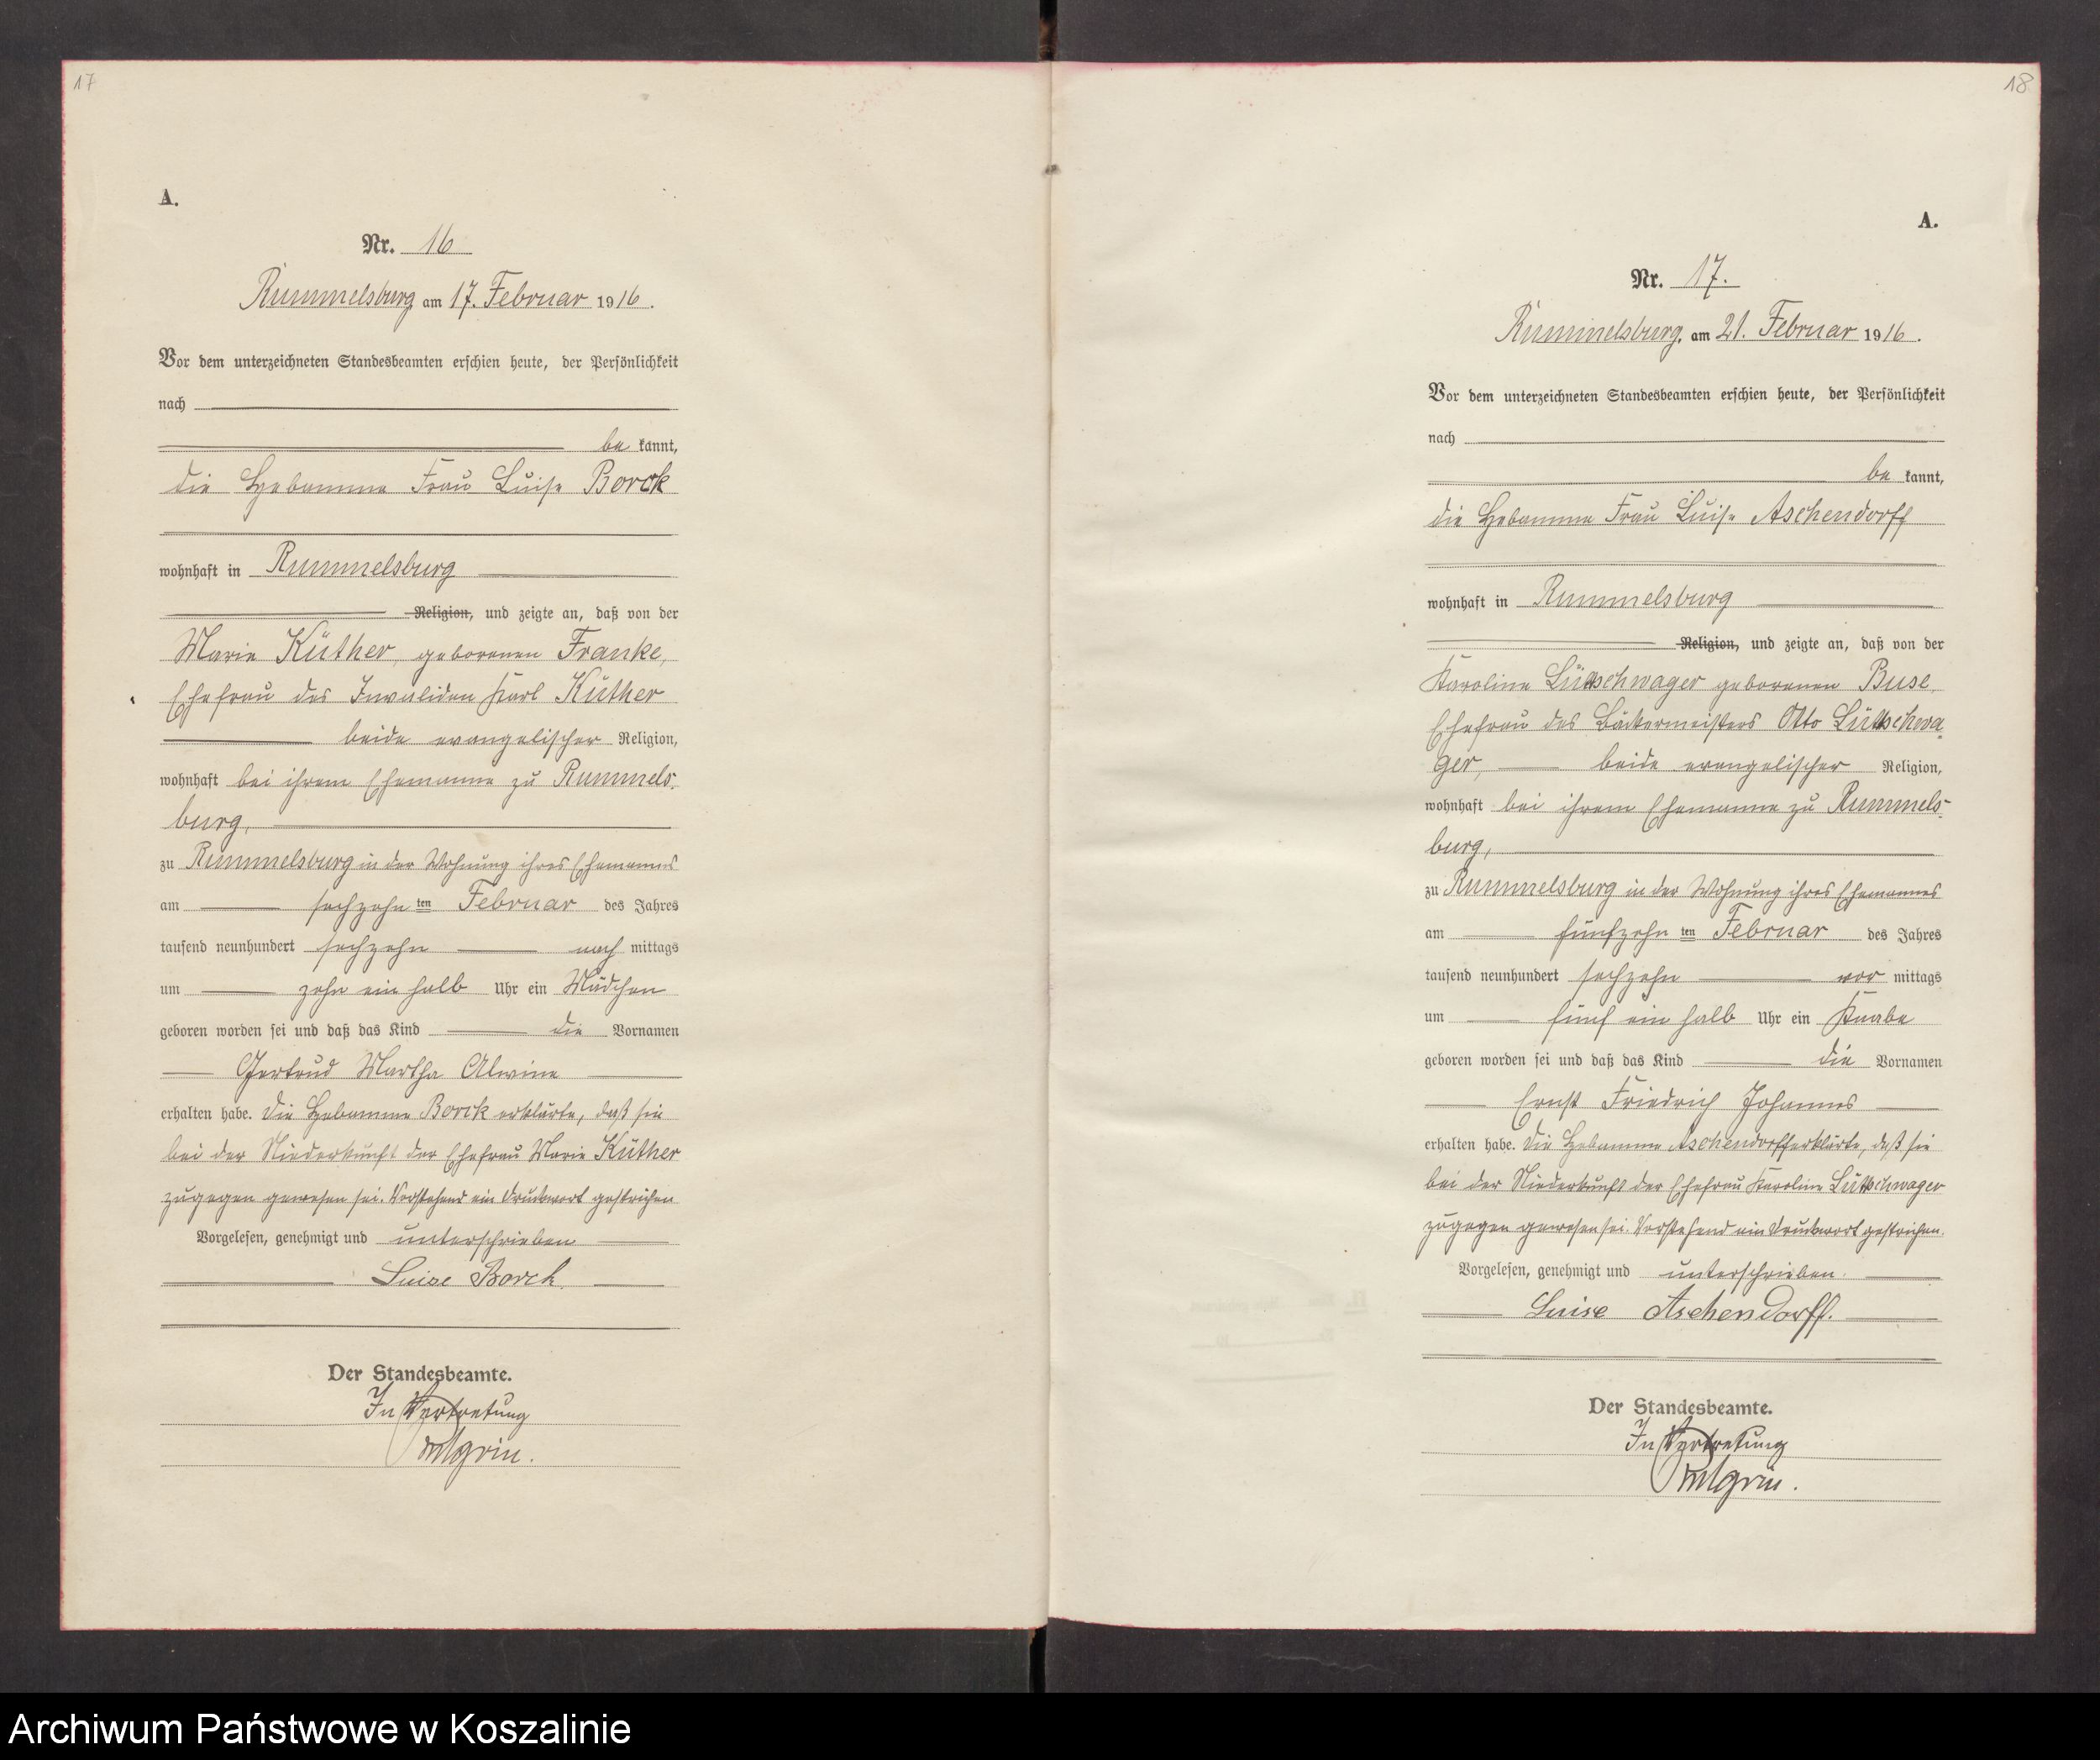 17
A.
Nr. 16
Rummelsburg am 17. Februar 1916.
Vor dem unterzeichneten Standesbeamten erschien heute, der Persönlichkeit
nach
be kannt,
die Hebamme Frau Luise Borck
wohnhaft in Rummelsburg
Religion, und zeigte an, daß von der
Marie Küther, geborenen Franke,
Ehefrau des Invaliden Karl Küther
beide evangelischer Religion,
wohnhaft bei ihrem Ehemanne zu Rummels-
burg,
zu Rummelsburg in der Wohnung ihres Ehemannes
am sechzehn ten Februar des Jahres
tausend neunhundert sechzehn nach mittags
um zehn ein halb Uhr ein Mädchen
geboren worden sei und daß das Kind die Vornamen
Gertrud Martha Alwine
erhalten habe. Die Hebamme Borck erklärte, daß sie
bei der Niederkunft der Ehefrau Marie Küther
zugegen gewesen sei. Vorstehend ein Druckwort gestrichen
Vorgelesen, genehmigt und unterschrieben
Luise Borck.
Der Standesbeamte.
In Vertretung
18
A.
Nr. 17.
Rummelsburg, am 21. Februar 1916.
Vor dem unterzeichneten Standesbeamten erschien heute, der Persönlichkeit
nach
be kannt,
die Hebamme Frau Luise Aschendorff
wohnhaft in Rummelsburg
Religion, und zeigte an, daß von der
Karoline Lüttschwager geborenen Buse,
Ehefrau des Bäckermeisters Otto Lüttschwa-
ger, beide evangelischer Religion,
wohnhaft bei ihrem Ehemanne zu Rummels-
burg,
zu Rummelsburg in der Wohnung ihres Ehemannes
am fünfzehn ten Februar des Jahres
tausend neunhundert sechzehn vor mittags
um fünf ein halb Uhr ein Knabe
geboren worden sei und daß das Kind die Vornamen
Ernst Friedrich Johannes
erhalten habe. Die Hebamme Aschendorff erklärte, daß sie
bei der Niederkunft der Ehefrau Karoline Lüttschwager
zugegen gewesen sei. Vorstehend ein Druckwort gestrichen.
Vorgelesen, genehmigt und unterschrieben.
Luise Aschendorff.
Der Standesbeamte.
In Vertretung
Archiwum Państwowe w Koszalinie